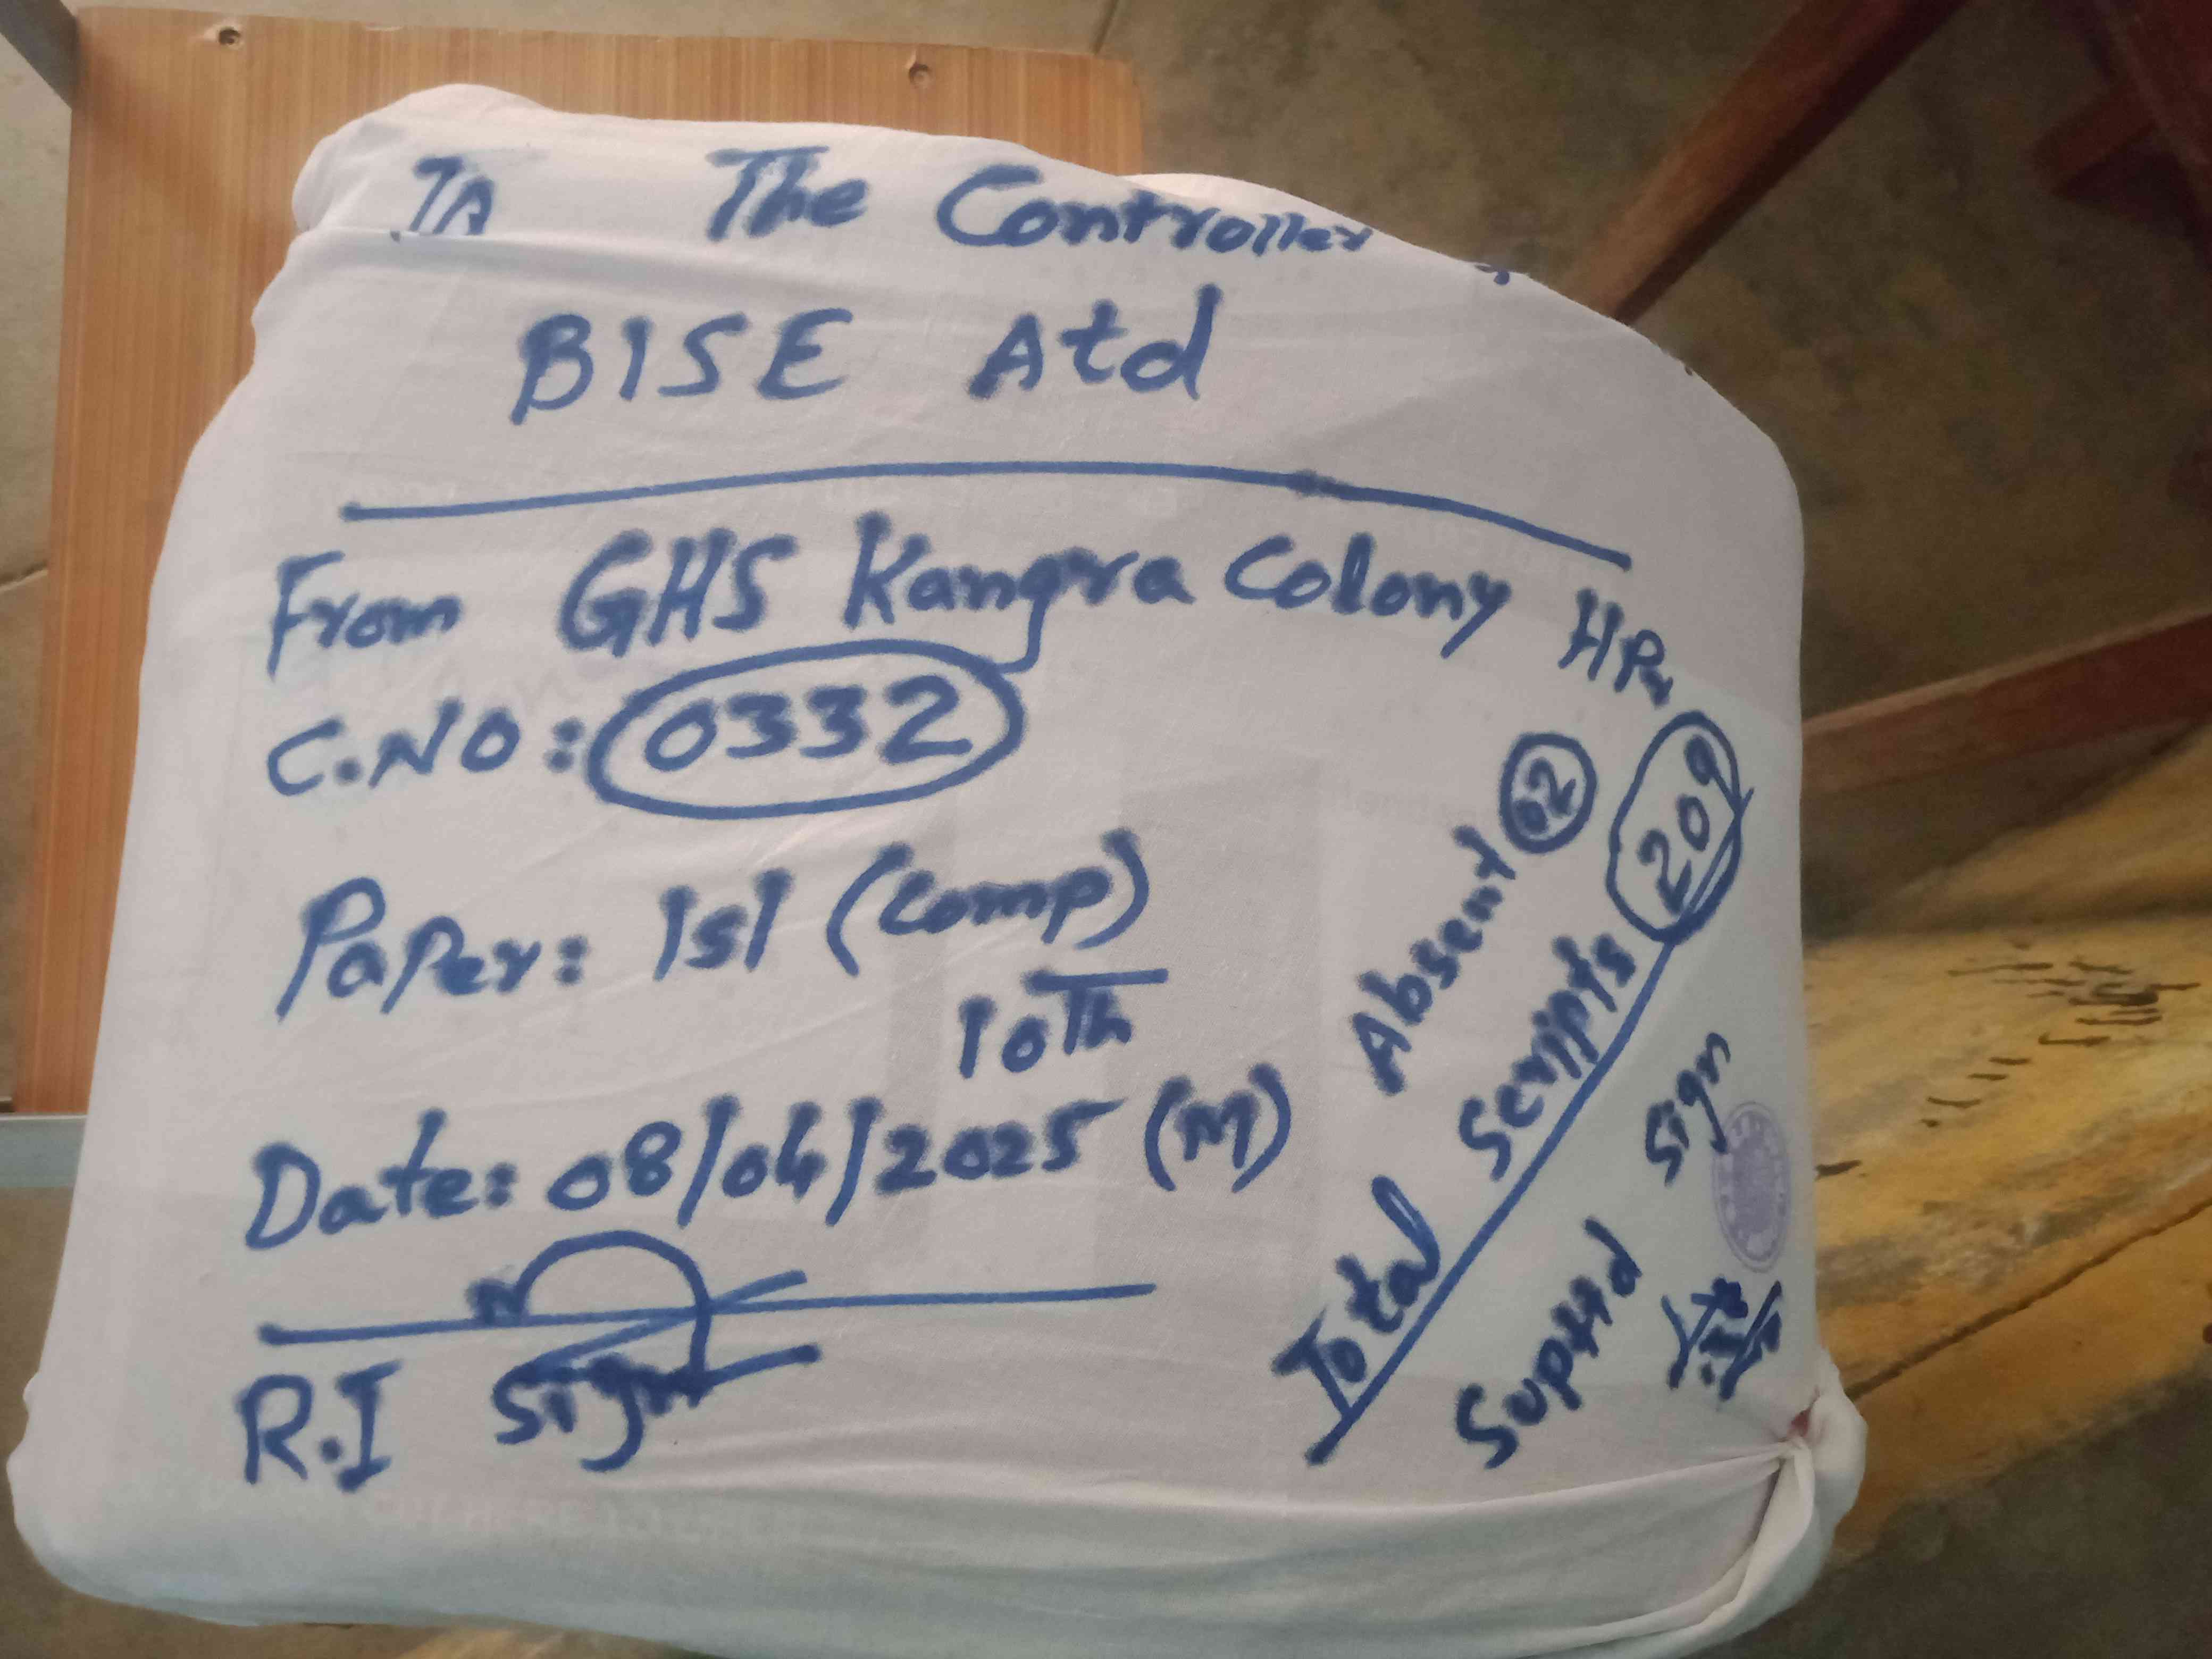 To The Controller
BISE Atd
From GHS Kangra Colony HPr
C.NO: 0332
Paper: 1st (Comp)
10Th
Date: 08/04/2025 (M)
R.I Sign
Absent 02
Total Scripts 209
Suptd Sign